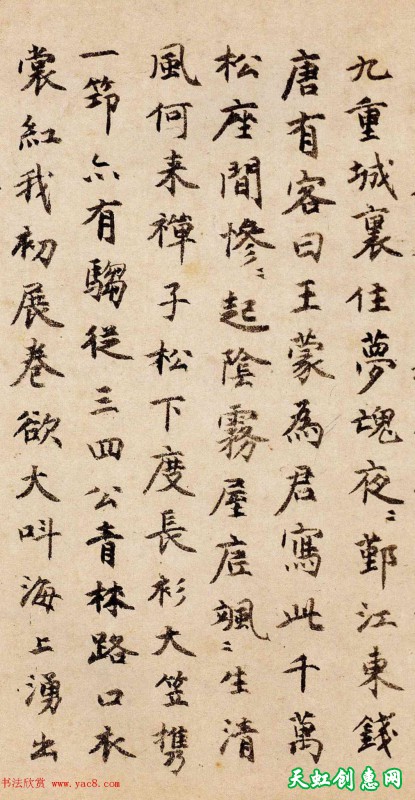 九重城裏住夢魂夜〻鄞江東錢
唐有客曰王蒙為君寫此千萬
松座間慘〻起陰霧屋底颯〻生清
風何來禪子松下度長衫大笠携
一笻亦有騶從三四公青林路口衣
裳紅我初展卷欲大叫海上湧出
书法欣赏 www.yac8.com
天虹创惠网